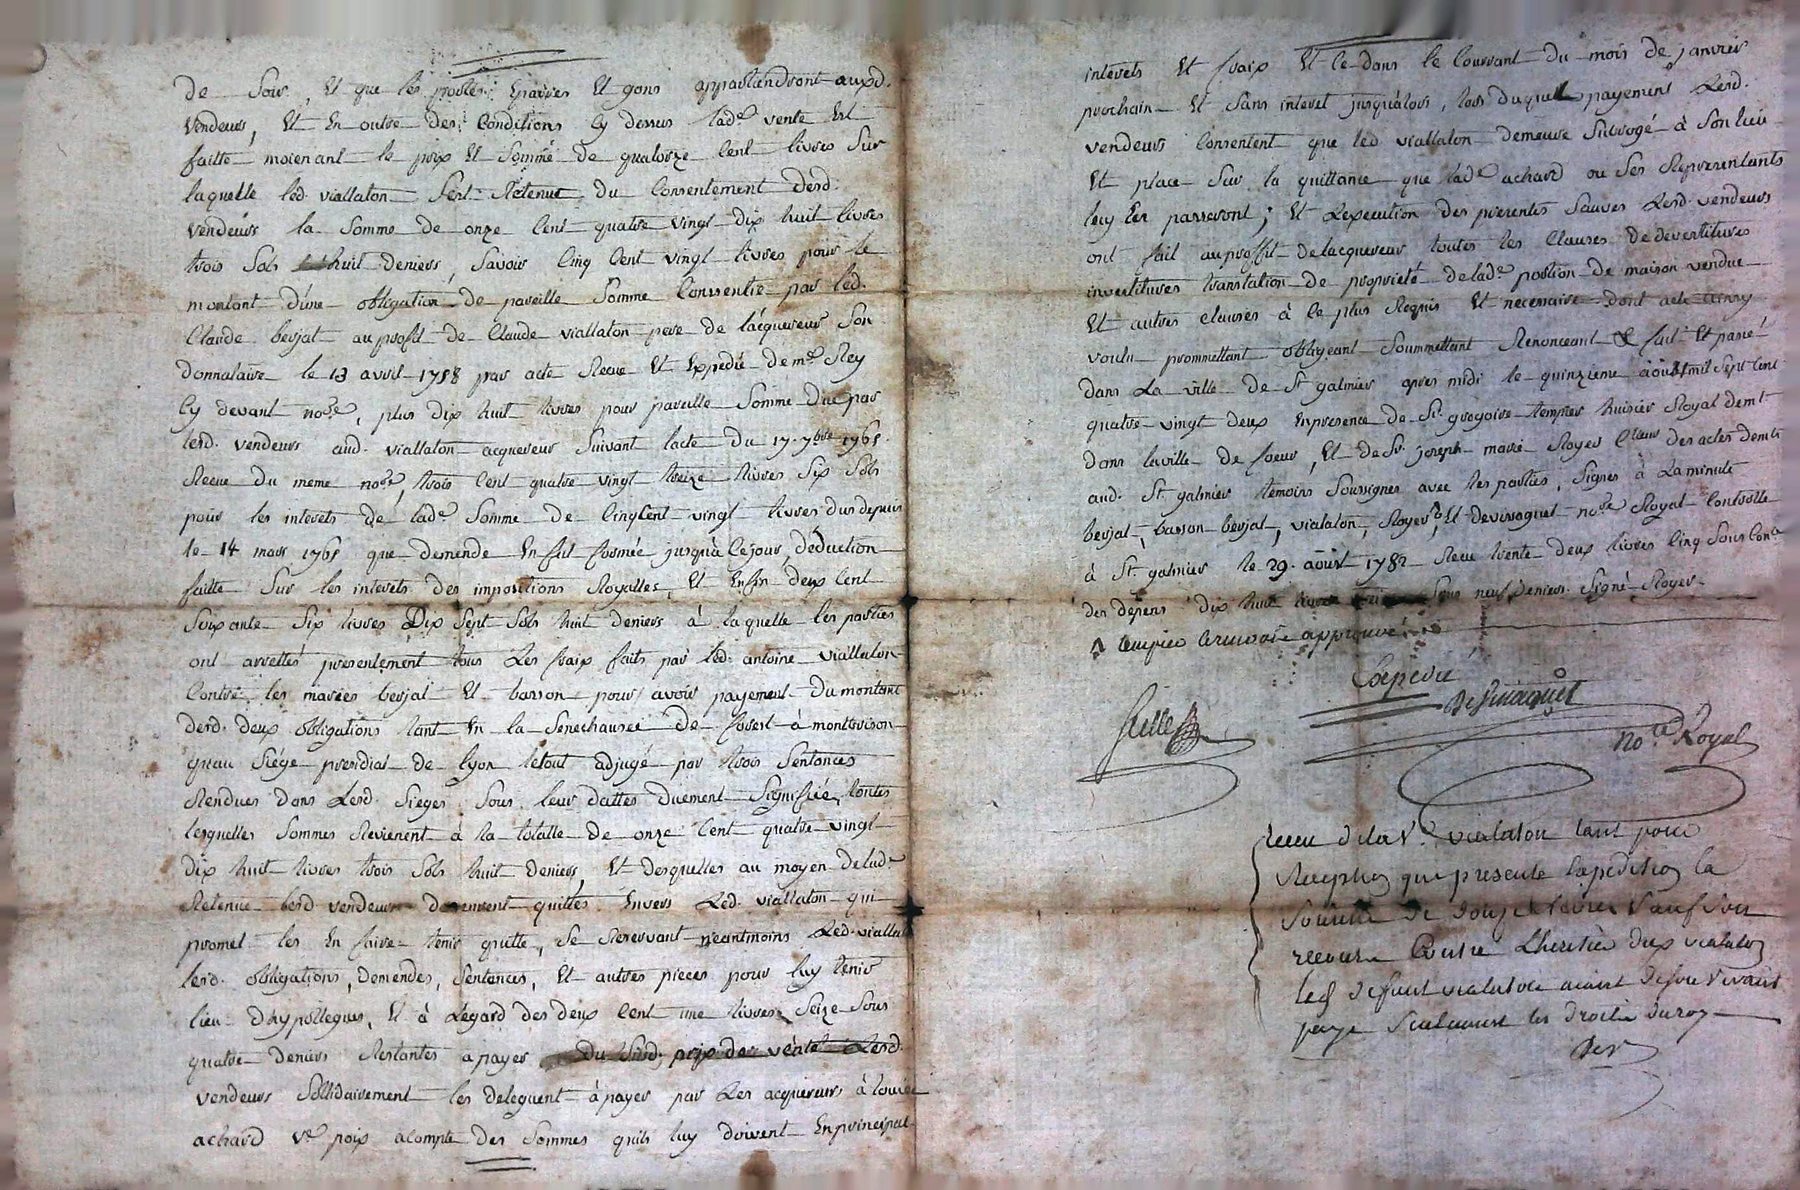 de Soir, Et que les portes Eparres Et gons appartiendront auxd.
vendeurs, Et En outre des Conditions Cy dessus lade vente Est
faitte moienant le prix Et Somme de quatorze Cent livres Sur
laquelle led. viallaton Sest Retenue du Consentement desd.
vendeurs la Somme de onze Cent quatre vingt dix huit livres
trois Sols huit deniers, Savoir Cinq Cent vingt livres pour le
montant d'une obligation de pareille Somme Consentie par led.
Claude berjat au profit de Claude viallaton pere de lacquereur Son
donnataire le 13 avril 1758 par acte Recue Et Expedié de me Rey
Cy devant nore, plus dix huit livres pour pareille Somme due par
lesd. vendeurs aud. viallaton acquereur Suivant lacte du 17. 7bre 1761.
Recue du meme nore, trois Cent quatre vingt treize livres Six Sols
pour les interets de lade Somme de Cinq Cent vingt livres dus depuis
le 14 mars 1761 que demende En fut formée jusqua Cejour, déduction
faitte Sur les interets des impositions Royalles, Et Enfin deux Cent
Soixante Six livres Dix Sept Sols huit deniers à laquelle les parties
ont arrettés presentement tous Les fraix faits par led. antoine viallaton
Contre les mariés berjat Et basson pour avoir payement du montant
desd. deux obligations tant En la Senechaussée de forest à montbrison
quau Siége presidial de lyon letout adjugé par trois Sentences
Rendues dans Lesd. Sieges Sous leur dattes duement Signifiée, toutes
lesquelles Sommes Revienent à la totalle de onze Cent quatre vingt
dix huit livres trois Sols huit deniers, Et desquelles au moyen de lade
Retenue lesd vendeurs demeurent quittes Envers Led. viallaton qui
promet les En faire tenir quitte, Se Reservant neantmoins Led. viallat
lesd. obligations, demendes, Sentences, Et autres pieces pour luy tenir
lieu dhypotteques, Et à Légard des deux Cent une livres Seize Sous
quatre deniers Restantes a payer du Susd. prix de vente Lesd.
vendeurs Sollidairement les deleguent à payer par Les acquereurs à louise
achard ve poix acompte des Sommes quils luy doivent En principal
interets Et fraix Et Ce dans le Courrant du mois de janvier
prochain Et Sans interet jusqualors, lors duquel payement Lesd.
vendeurs Consentent que led viallaton demeure Subrogé à Son lieu
Et place Sur la quittance que lade achard ou Ses Representants
luy En passeront; Et Lexecution des presentes Sauves Lesd. vendeurs
ont fait au proffit de lacquereur toutes les Clauses de devestitures
investitures translation de proprieté de lade portion de maison vendue
Et autres Clauses à Ce plus Requis Et necessaire dont acte ainsy
voulu promettant obligeant Soummettant Renonceant & fait Et passé
dans La ville de St galmier apres midi le quinzieme août mil Sept Cent
quatre vingt deux En presence de Sr gregoire tempier huisier Royal demt
dans la ville de foeur, Et de Sr. joseph marie Royer Cleur des actes demt
aud. St galmier temoins Soussignes avec les parties, Signes à La minute
berjat, basson berjat, vialaton, Royer, Et devissaguet nore Royal Controlle
à St galmier le 29. août 1782 Recu trente deux livres Cinq Sous Con
des depens dix huit livres Sous neuf deniers. Signé Royer.
tempier approuvé
Expedié
Devissaguet
Gille
nore Royal
receu de la Ve. vialaton tant pour
Reception que presente Expedition la
Somme de douze livres Sauf Son
recours Contre Lheritier dud vialaton
led deffunt vialaton aiant de Son vivant
paye Seulement les droits du roy
Dev